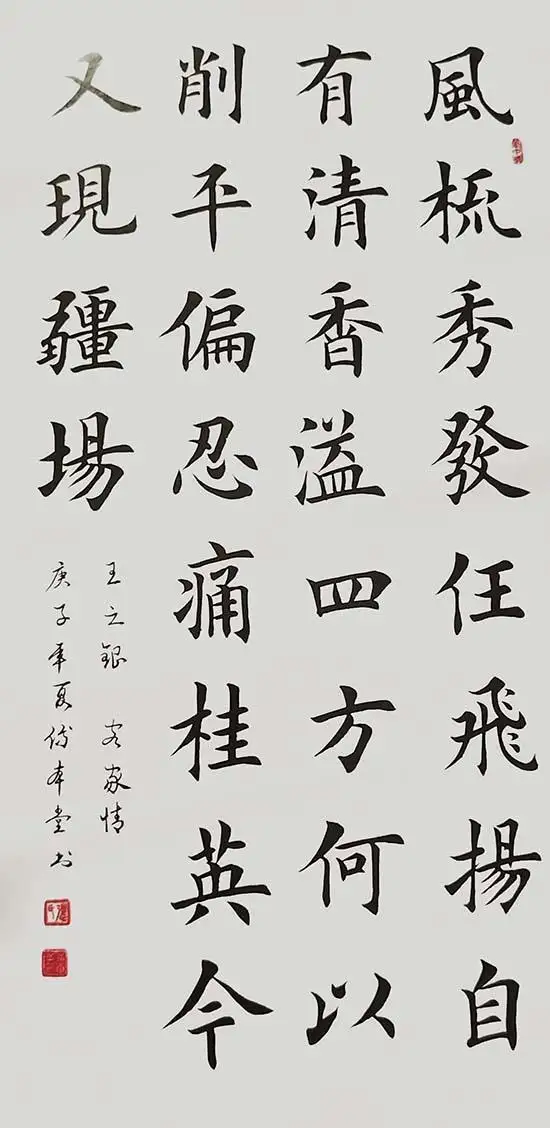 風梳秀發任飛揚自
有清香溢四方何以
削平偏忍痛桂英今
又現疆場
王立銀 客家情
庚子年夏 本堂书